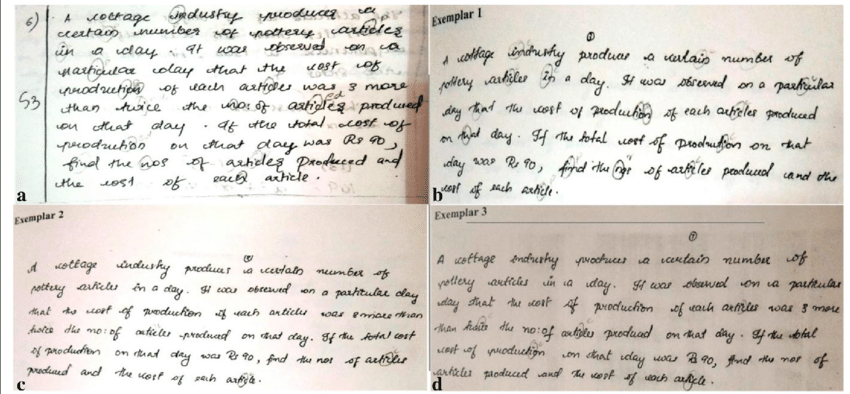 6) A cottage industry produces a
certain number of pottery articles
in a day. It was observed on a
particular day that the cost of
production of each articles was 3 more
53 than twice the no: of articles produced
on that day. If the total cost of
production on that day was Rs 90,
find the nos of articles produced and
the cost of each article.
a
Exemplar 1
①
A cottage industry produces a certain number of
pottery articles in a day. It was observed on a particular
day that the cost of production of each articles produced
on that day. If the total cost of production on that
day was Rs 90, find the nos of articles produced and the
cost of each article.
b
Exemplar 2
A cottage industry produces a certain number of
pottery articles in a day. It was observed on a particular day
that the cost of production of each articles was 3 more than
twice the no: of articles produced on that day. If the total cost
of production on that day was Rs 90, find the nos of articles
produced and the cost of each article.
c
Exemplar 3
①
A cottage industry produces a certain number of
pottery articles in a day. It was observed on a particular
day that the cost of production of each articles was 3 more
than twice the no: of articles produced on that day. If the total
cost of production on that day was Rs 90, find the nos of
articles produced and the cost of each article.
d